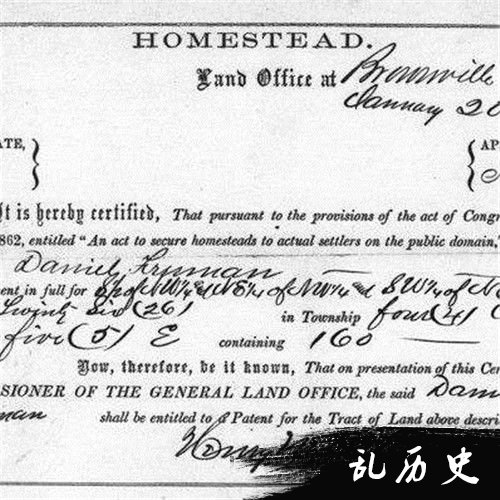 HOMESTEAD.
Land Office at Brownville
January 20
ATE,
AP
It is hereby certified, That pursuant to the provisions of the act of Congr
1862, entitled "An act to secure homesteads to actual settlers on the public domain,"
Daniel Freeman
ent in full for of NW¼ & NE¼ of NW¼ & SW¼ of N
Twenty Six (26) in Township four (4)
five (5) E containing 160
Now, therefore, be it known, That on presentation of this Cer
SSIONER OF THE GENERAL LAND OFFICE, the said Dani
man shall be entitled to a Patent for the Tract of Land above descri
Henry
乱历史